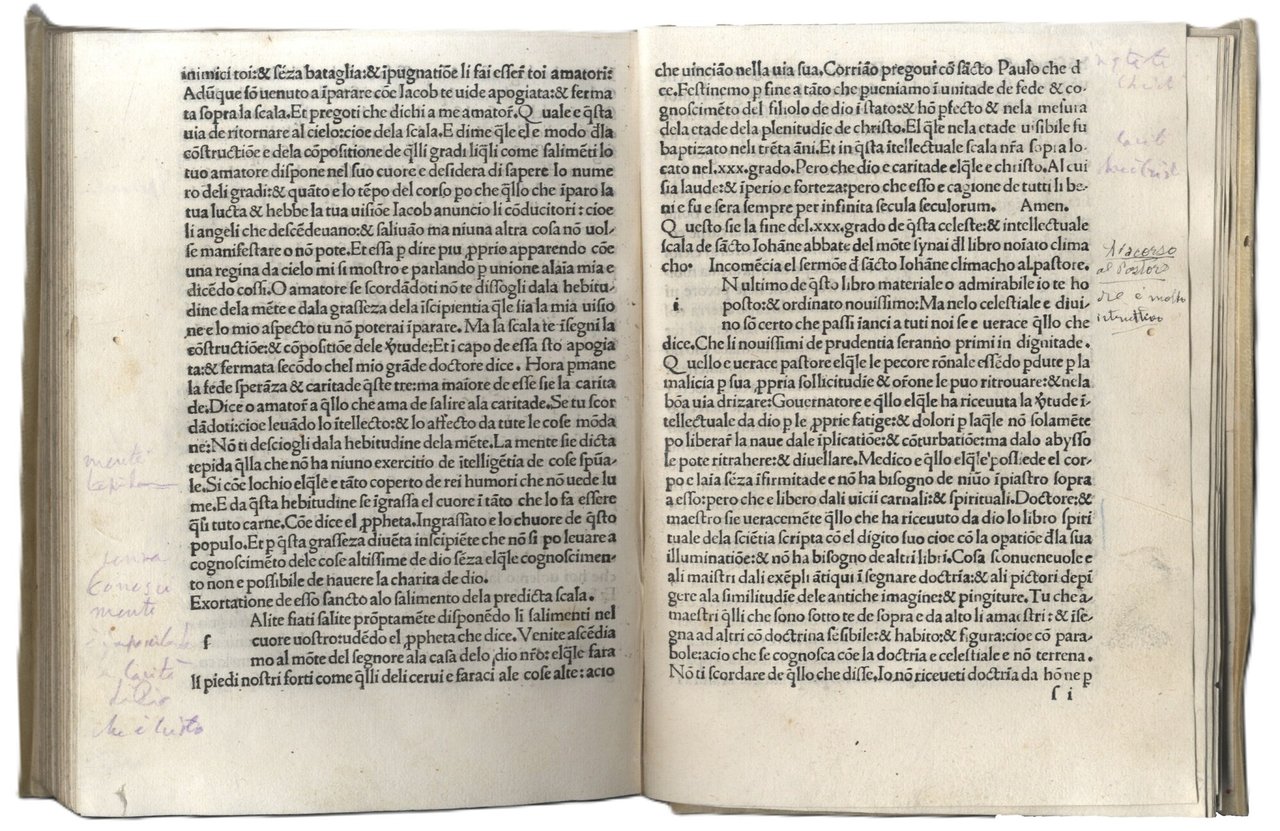 inimici toi:& séza bataglia:& īpugnatiōe li fai esser toi amatori:
Adūque sō uenuto a īparare cōe Iacob te uide apogiata:& ferma
ta sopra la scala.Et pregoti che dichi a me amator. Quale e q̄sta
uia de ritornare al cielo:cioe dela scala.E dime q̄le el e modo dla
cōstructiōe e dela cōpositione de q̄lli gradi liq̄li come salimēti lo
tuo amatore dispone nel suo cuore e desidera di sapere lo nume
ro deli gradi:& quāto e lo tēpo del corso po che q̄llo che īparo la
tua lucta & hebbe la tua uisiōe Iacob anuncio li cōducitori:cioe
li angeli che descēdeuano:& saliuāo ma niuna altra cosa nō uol-
se manifestare o nō pote.Et essa p dire piu ,pprio apparendo cōe
una regina da cielo mi si mostro e parlando p unione alaīa mia e
dicēdo cossi.O amatore se scordādoti nō te dissogli dala hebitu-
dine dela mēte e dala grasseza dela īscipientia q̄le sia la mia uisio
ne e lo mio aspecto tu nō poterai īparare. Ma la scala te īsegni la
cōstructiōe:& cōpositiōe dele v̄tude:Et ī capo de essa sto apogia
ta:& fermata secōdo chel mio grāde doctore dice. Hora pmane
la fede sperāza & caritade q̄ste tre:ma maiore de esse sie la carita
de.Dice o amator a q̄llo che ama de salire ala caritade.Se tu scor
dādoti:cioe leuādo lo ītellecto:& lo affecto da tute le cose mōda
ne:Nō ti desciogli dala hebitudine dela mēte.La mente sie dicta
tepida q̄lla che nō ha niuno exercitio de ītelligētia de cose spūa-
le.Si cōe lochio elq̄le e tāto coperto de rei humori che nō uede lu
me.E da q̄sta hebitudine se īgrassa el cuore ī tāto che lo fa essere
q̄si tuto carne.Cōe dice el ,ppheta.Ingrassato e lo chuore de q̄sto
populo.Et p q̄sta grasseza diuēta inscipiēte che nō si po leuare a
cognoscimēto dele cose altissime de dio sēza elq̄le cognoscimen-
to non e possibile de hauere la charita de dio.
Exortatione de esso sancto alo salimento dela predicta scala.
Alite fiati salite prōptamēte disponēdo li salimenti nel
s cuore uostro:udēdo el ,ppheta che dice.Venite ascēdia
mo al mōte del segnore ala casa delo dio nr̄o:elq̄le fara
li piedi nostri forti come q̄lli deli cerui e faraci ale cose alte:acio
mente
tepida
senza
mente
carità
che è cristo
che uinciāo nella uia sua.Corriāo pregoui cō sācto Paulo che d
ce.Festinemo p fine a tāto che pueniamo ī unitade de fede & co-
gnoscimēto del filiolo de dio ī stato:& hō pfecto & nela mesura
dela etade dela plenitudie de christo.El q̄le nela etade uisibile fu
baptizato neli trēta āni.Et in q̄sta ītellectuale scala nr̄a sopra lo-
cato nel.xxx.grado.Pero che dio e caritade elq̄le e christo.Al cui
sia laude:& īperio e forteza:pero che esso e cagione de tutti li be-
ni e fu e sera sempre per infinita secula seculorum. Amen.
Questo sie la fine del.xxx.grado de q̄sta celeste:& intellectuale
scala de sācto Iohāne abbate del mōte synai dl libro noīato clima
cho. Incomēcia el sermōe d̄ sācto Iohāne climacho al pastore.
N ultimo de q̄sto libro materiale o admirabile io te ho
i. posto:& ordinato nouissimo:Ma nelo celestiale e diui-
no sō certo che passi īanci a tuti noi se e uerace q̄llo che
dice.Che li nouissimi de prudentia serānno primi in dignitade.
Quello e uerace pastore elq̄le le pecore rōnale essēdo pdute p la
malicia p sua ,ppria sollicitudīe & or̄one le puo ritrouare:& nela
bōa uia drizare:Gouernatore e q̄llo elq̄le ha riceuuta la v̄tude ī-
tellectuale da dio p le ,pprie fatige:& dolori p laq̄le nō solamēte
po liberar la naue dale īplicatiōe:& cōturbatiōe:ma dalo abysso
le pote ritrahere:& diuellare.Medico e q̄llo elq̄le possede el cor-
po e laīa séza īfirmitade e nō ha bisogno de niūo īpiastro sopra
a esso:pero che e libero dali uicii carnali:& spirituali.Doctore:&
maestro sie ueracemēte q̄llo che ha riceuuto da dio lo libro spiri
tuale dela sciētia scripta cō el digito suo cioe cō la opatiōe dla sua
illuminatiōe:& nō ha bisogno de altri libri.Cosa scōueneuole e
ali maistri dali exēpli ātiqui ī segnare doctrīa:& ali pictori depī
gere ala similitudīe dele antiche imagine:& pingiture.Tu che a-
maestri q̄lli che sono sotto te de sopra e da alto li amaestri:& īse-
gna ad altri cō doctrina sēsibile:& habito:& figura:cioe cō para-
bole:acio che se cognosca cōe la doctrīa e celestiale e nō terrena.
Nō ti scordare de q̄llo che disse.Io nō riceueti doctrīa da hōne p
s i
al Pastore
che è molto
istruttivo